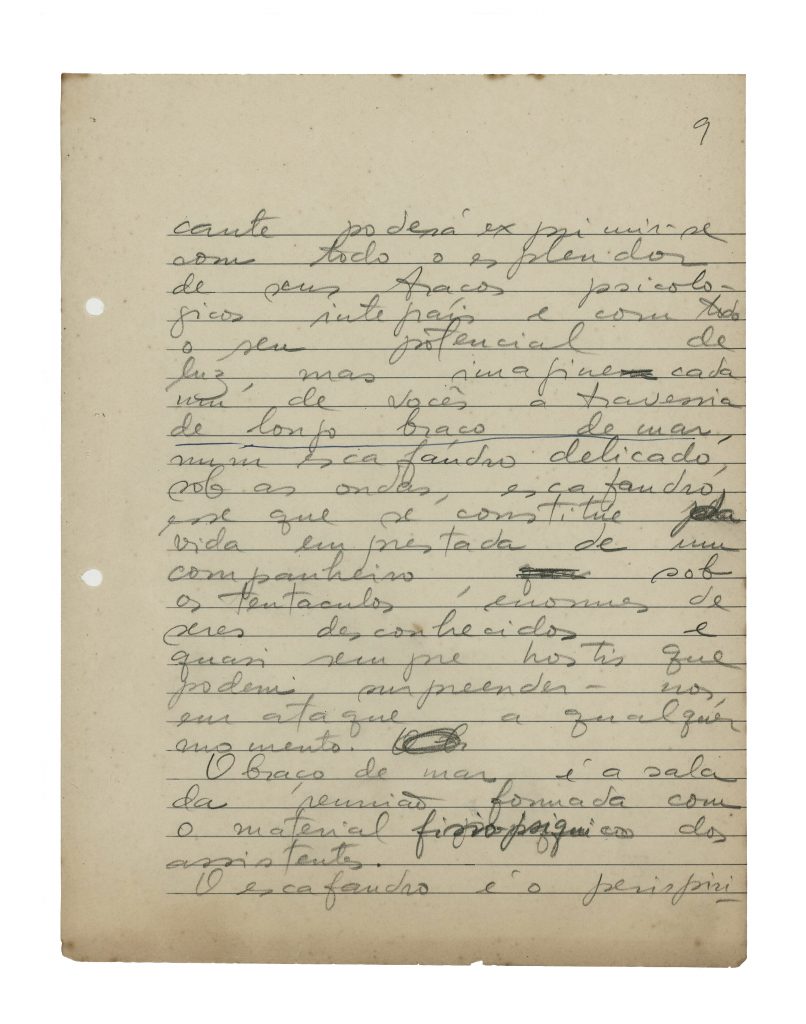 9
cante poderá exprimir-se
com todo o esplendor
de seus traços psicolo-
gicos integrais e com todo
o seu potencial de
luz, mas imagine cada
um de vocês a travessia
de longo braço de mar,
num escafandro delicado,
sob as ondas, escafandro,
esse que se constitue da
vida emprestada de um
companheiro sob
os tentaculos enormes de
seres desconhecidos e
quasi sempre hostis que
podem surpreender-nos,
em ataque a qualquer
momento.
O braço de mar é a sala
da reunião formada com
o material fisiopsiquico dos
assistentes.
O escafandro é o perispiri